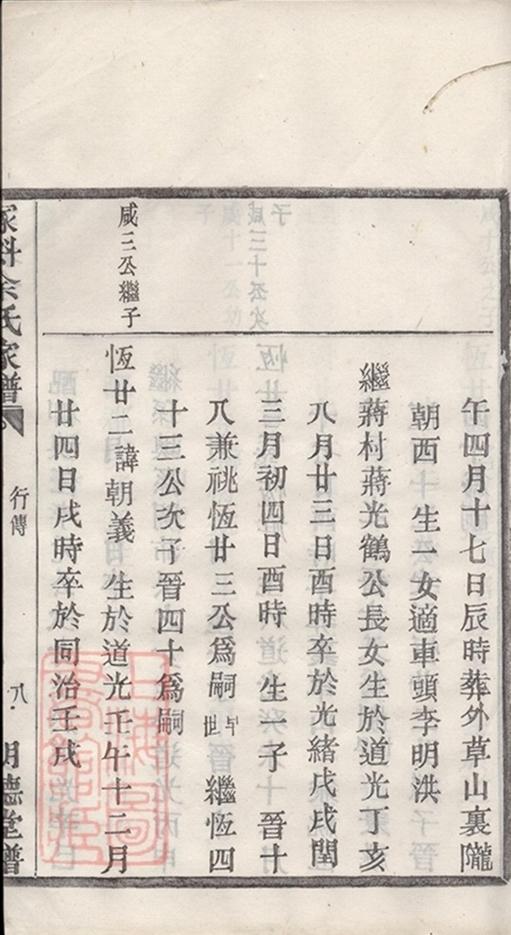 午四月十七日辰時葬外草山裏隴
朝西 生一女適車頭李明洪
繼蔣村蔣光鶴公長女生於道光丁亥
八月廿三日酉時卒於光緒戌戌閏
三月初四日酉時 生一子 晉十
八兼祧恆廿三公爲嗣 早世 繼恆四
十三公次子晉四十爲嗣
咸三公繼子
恆廿二諱朝義 生於道光壬午十二月
廿四日戌時卒於同治壬戌
余氏家譜
行傳
八
明德堂譜